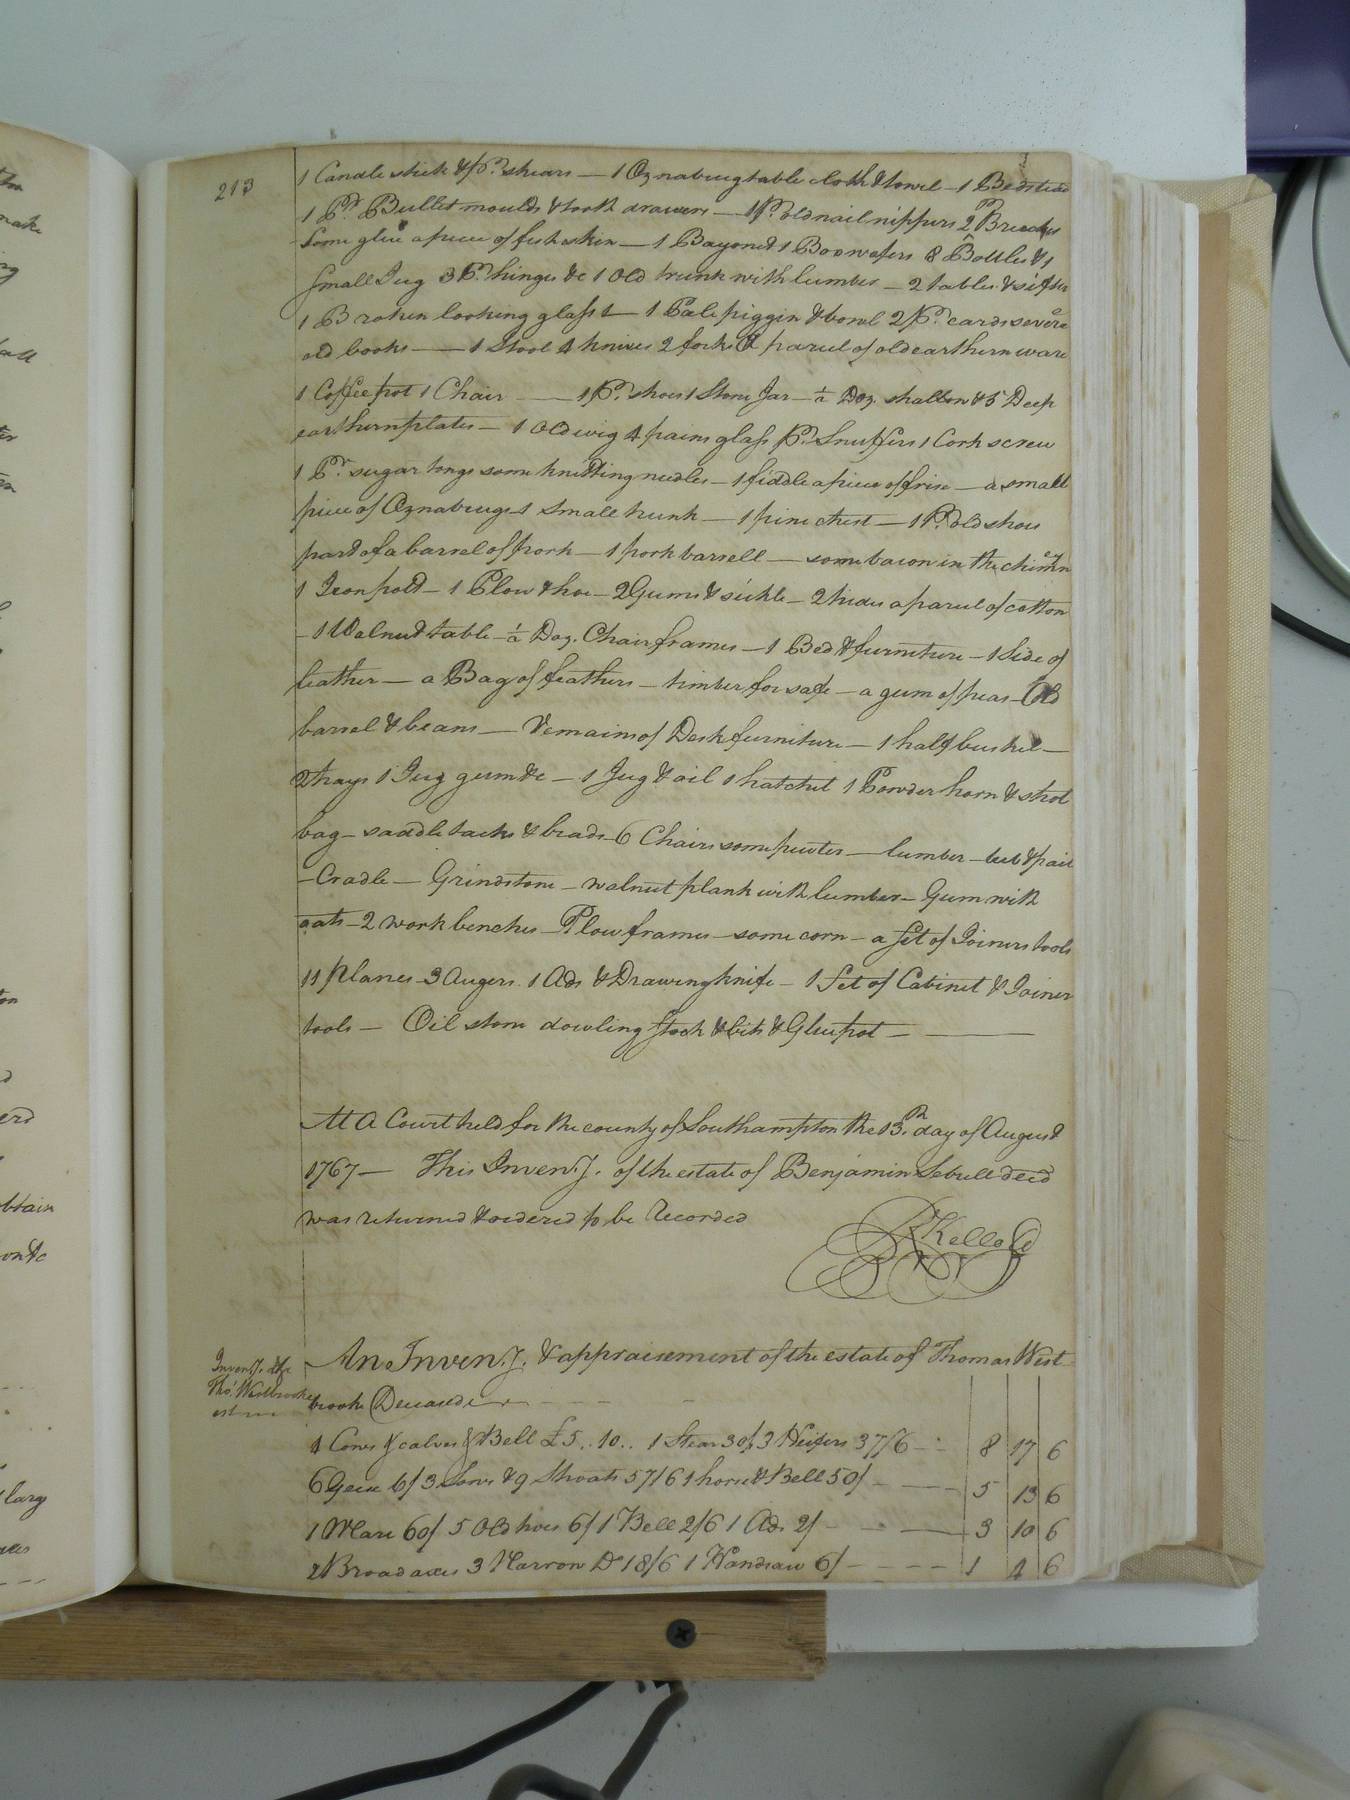 213
1 Candle stick & pr. shears — 1 Oznabrug table cloth & towel — 1 Bedstead
1 Pr Bullet moulds & tooth drawers — 1 pr. old nail nippers 2 pr Breeches
Some glue a piece of fish skin — 1 Bayonet 1 Box wafers 8 Bottles & 1
Small Jug 3 Pr. hinges &c 1 Old trunk with lumber — 2 tables & sifter
1 Broken looking glass — 1 Pale piggin & bowl 2 pr. cards severe
old books — 1 Stool 4 knives 2 forks & A parcel of old earthern ware
1 Coffee pot 1 Chair — 1 pr. shoes 1 Stone Jar — ½ Doz. shallow & 5 Deep
earthern plates — 1 Old wig 4 pains glass pr. Snuffers 1 Cork screw
1 Pr. sugar tongs some knitting needles — 1 fiddle a piece of frise — a small
piece of Oznabrugs 1 small trunk — 1 pine chest — 1 Pr. old shoes
part of a barrel of pork — 1 pork barrell — some bacon in the chimn
1 Iron pott — 1 Plow & hoe — 2 Gums & sickle — 2 hides a parcel of cotton
— 1 Walnut table — ½ Doz. Chair frames — 1 Bed & furniture — 1 Side of
leather — a Bag of feathers — timber for safe — a gum of peas — Old
barrel & beans — Remains of Desk furniture — 1 half bushel —
2 trays 1 Jug gum &c — 1 Jug & oil 1 hatchet 1 Powder horn & shot
bag — saddle tacks & brads — 6 Chairs some pewter — lumber — tub & pail
— Cradle — Grindstone — walnut plank with lumber — Gum with
oats — 2 work benches — Plow frames — some corn — a Set of Joiners tools
11 Planes 3 Augers 1 Ads & Drawing knife — 1 Set of Cabinet & Joiner
tools — Oil stone dowling stock & bits & Glue pot —
At A Court held for the county of Southampton the 13th. day of August
1767 — This Inven.y. of the estate of Benjamin Sebrell decd
was returned & ordered to be Recorded
R Kello
Inven.y. &c
Tho.s Westbrooke
est
An Inven.y. & appraisement of the estate of Thomas West
brook Deceased
4 Cows & calves & Bell £5..10.. 1 Stear 30/ 3 Heifers 37/6 — 8 17 6
6 Geese 6/ 3 Sows & 9 Shoats 57/6 1 horse & Bell 50/ — 5 13 6
1 Mare 60/ 5 Old hoes 6/ 1 Bell 2/6 1 Ads 2/ — 3 10 6
2 Broad axes 3 Narrow Do 18/6 1 Handsaw 6/ — 1 4 6